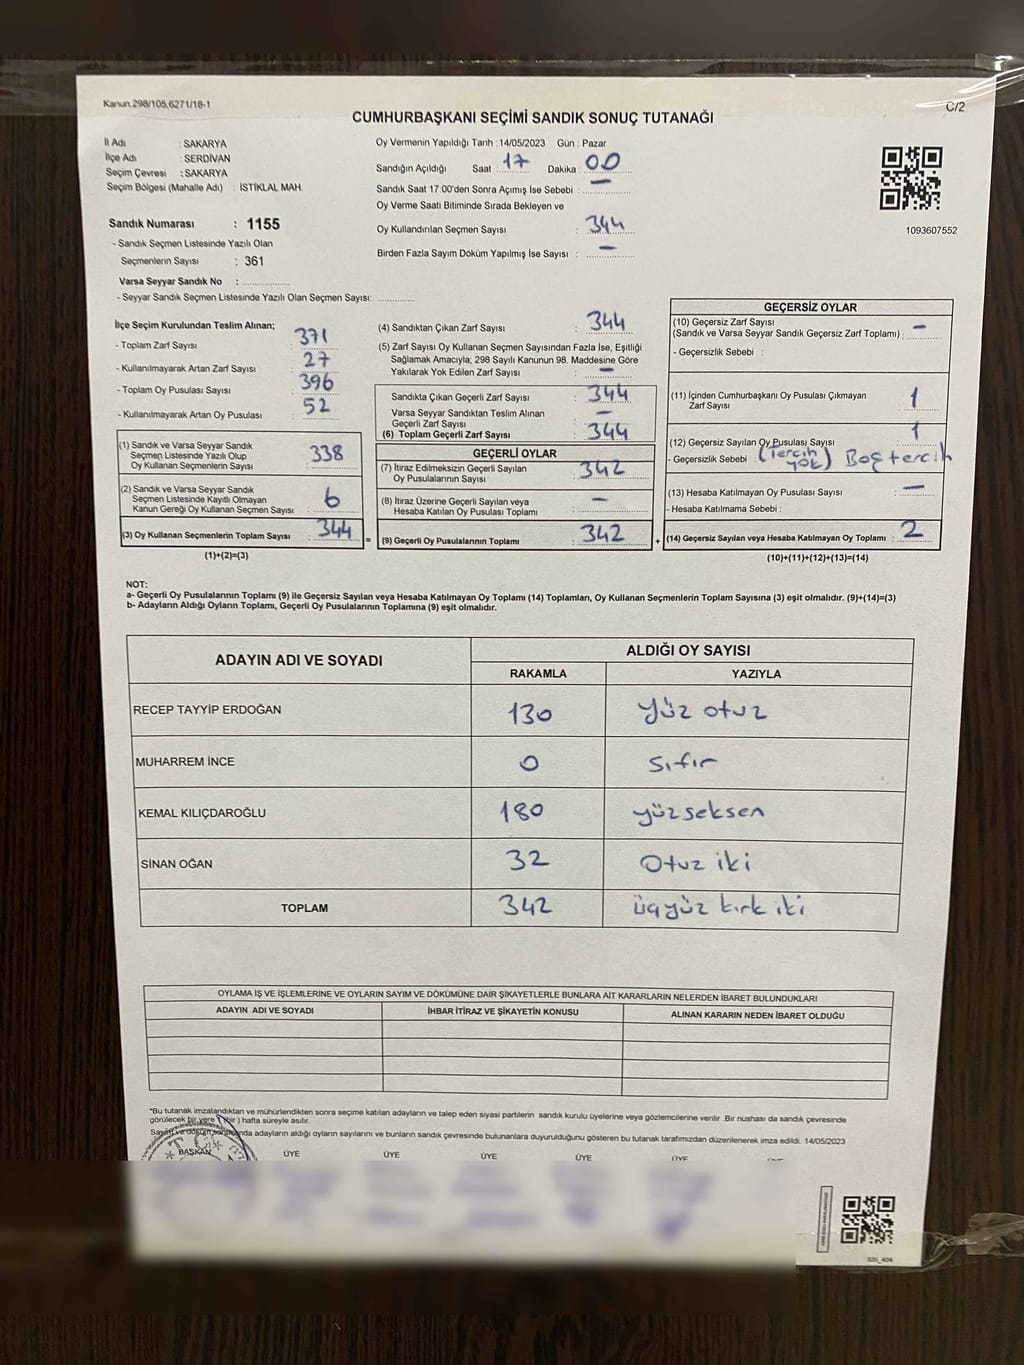 Kanun.298/105,6271/18-1
C/2
CUMHURBAŞKANI SEÇİMİ SANDIK SONUÇ TUTANAĞI
İl Adı : SAKARYA
İlçe Adı : SERDİVAN
Seçim Çevresi : SAKARYA
Seçim Bölgesi (Mahalle Adı) : İSTİKLAL MAH.
Oy Vermenin Yapıldığı Tarih : 14/05/2023 Gün : Pazar
Sandığın Açıldığı Saat : 17 Dakika : 00
Sandık Saat 17.00'den Sonra Açımış İse Sebebi : —
Oy Verme Saati Bitiminde Sırada Bekleyen ve
Oy Kullandırılan Seçmen Sayısı : 344
Birden Fazla Sayım Döküm Yapılmış İse Sayısı : —
1093607552
Sandık Numarası : 1155
- Sandık Seçmen Listesinde Yazılı Olan
Seçmenlerin Sayısı : 361
Varsa Seyyar Sandık No :
- Seyyar Sandık Seçmen Listesinde Yazılı Olan Seçmen Sayısı:
İlçe Seçim Kurulundan Teslim Alınan;
- Toplam Zarf Sayısı : 371
- Kullanılmayarak Artan Zarf Sayısı : 27
- Toplam Oy Pusulası Sayısı : 396
- Kullanılmayarak Artan Oy Pusulası : 52
(1) Sandık ve Varsa Seyyar Sandık
Seçmen Listesinde Yazılı Olup
Oy Kullanan Seçmenlerin Sayısı : 338
(2) Sandık ve Varsa Seyyar Sandık
Seçmen Listesinde Kayıtlı Olmayan
Kanun Gereği Oy Kullanan Seçmen Sayısı : 6
(3) Oy Kullanan Seçmenlerin Toplam Sayısı : 344
(1)+(2)=(3)
(4) Sandıktan Çıkan Zarf Sayısı : 344
(5) Zarf Sayısı Oy Kullanan Seçmen Sayısından Fazla İse, Eşitliği
Sağlamak Amacıyla; 298 Sayılı Kanunun 98. Maddesine Göre
Yakılarak Yok Edilen Zarf Sayısı : —
Sandıkta Çıkan Geçerli Zarf Sayısı : 344
Varsa Seyyar Sandıktan Teslim Alınan
Geçerli Zarf Sayısı : —
(6) Toplam Geçerli Zarf Sayısı : 344
GEÇERLİ OYLAR
(7) İtiraz Edilmeksizin Geçerli Sayılan
Oy Pusulalarının Sayısı : 342
(8) İtiraz Üzerine Geçerli Sayılan veya
Hesaba Katılan Oy Pusulası Toplamı : —
= (9) Geçerli Oy Pusulalarının Toplamı : 342
GEÇERSİZ OYLAR
(10) Geçersiz Zarf Sayısı
(Sandık ve Varsa Seyyar Sandık Geçersiz Zarf Toplamı) : —
- Geçersizlik Sebebi :
(11) İçinden Cumhurbaşkanı Oy Pusulası Çıkmayan
Zarf Sayısı : 1
(12) Geçersiz Sayılan Oy Pusulası Sayısı : 1
- Geçersizlik Sebebi : (Tercih yok) Boş tercih
(13) Hesaba Katılmayan Oy Pusulası Sayısı : —
- Hesaba Katılmama Sebebi :
+ (14) Geçersiz Sayılan veya Hesaba Katılmayan Oy Toplamı : 2
(10)+(11)+(12)+(13)=(14)
NOT:
a- Geçerli Oy Pusulalarının Toplamı (9) ile Geçersiz Sayılan veya Hesaba Katılmayan Oy Toplamı (14) Toplamları, Oy Kullanan Seçmenlerin Toplam Sayısına (3) eşit olmalıdır. (9)+(14)=(3)
b- Adayların Aldığı Oyların Toplamı, Geçerli Oy Pusulalarının Toplamına (9) eşit olmalıdır.
ADAYIN ADI VE SOYADI
ALDIĞI OY SAYISI
RAKAMLA YAZIYLA
RECEP TAYYİP ERDOĞAN 130 yüz otuz
MUHARREM İNCE 0 sıfır
KEMAL KILIÇDAROĞLU 180 yüzseksen
SİNAN OĞAN 32 otuz iki
TOPLAM 342 üçyüz kırk iki
OYLAMA İŞ VE İŞLEMLERİNE VE OYLARIN SAYIM VE DÖKÜMÜNE DAİR ŞİKAYETLERLE BUNLARA AİT KARARLARIN NELERDEN İBARET BULUNDUKLARI
ADAYIN ADI VE SOYADI İHBAR İTİRAZ VE ŞİKAYETİN KONUSU ALINAN KARARIN NEDEN İBARET OLDUĞU
*Bu tutanak imzalandıktan ve mühürlendikten sonra seçime katılan adayların ve talep eden siyasi partilerin sandık kurulu üyelerine veya gözlemcilerine verilir. Bir nüshası da sandık çevresinde
görülecek bir yere (bir) hafta süreyle asılır.
Sayım ve döküm sonunda adayların aldığı oyların sayılarını ve bunların sandık çevresinde bulunanlara duyurulduğunu gösteren bu tutanak tarafımızdan düzenlenerek imza edildi. 14/05/2023
BAŞKAN ÜYE ÜYE ÜYE ÜYE ÜYE